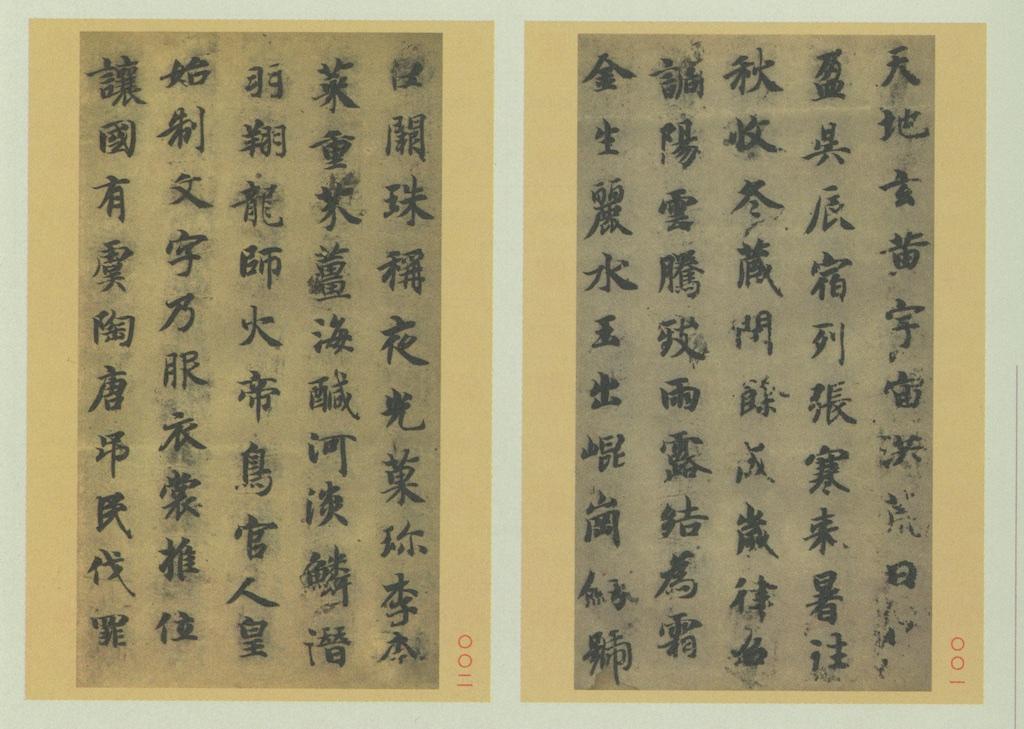 天地玄黄宇宙洪荒日月
盈昃辰宿列張寒来暑往
秋收冬藏閏餘成歲律召
調陽雲騰致雨露結為霜
金生麗水玉出崐崗劒號
〇〇一
巨闕珠稱夜光菓珎李柰
菜重芥薑海醎河淡鱗潛
羽翔龍師火帝鳥官人皇
始制文字乃服衣裳推位
讓國有虞陶唐吊民伐罪
〇〇二